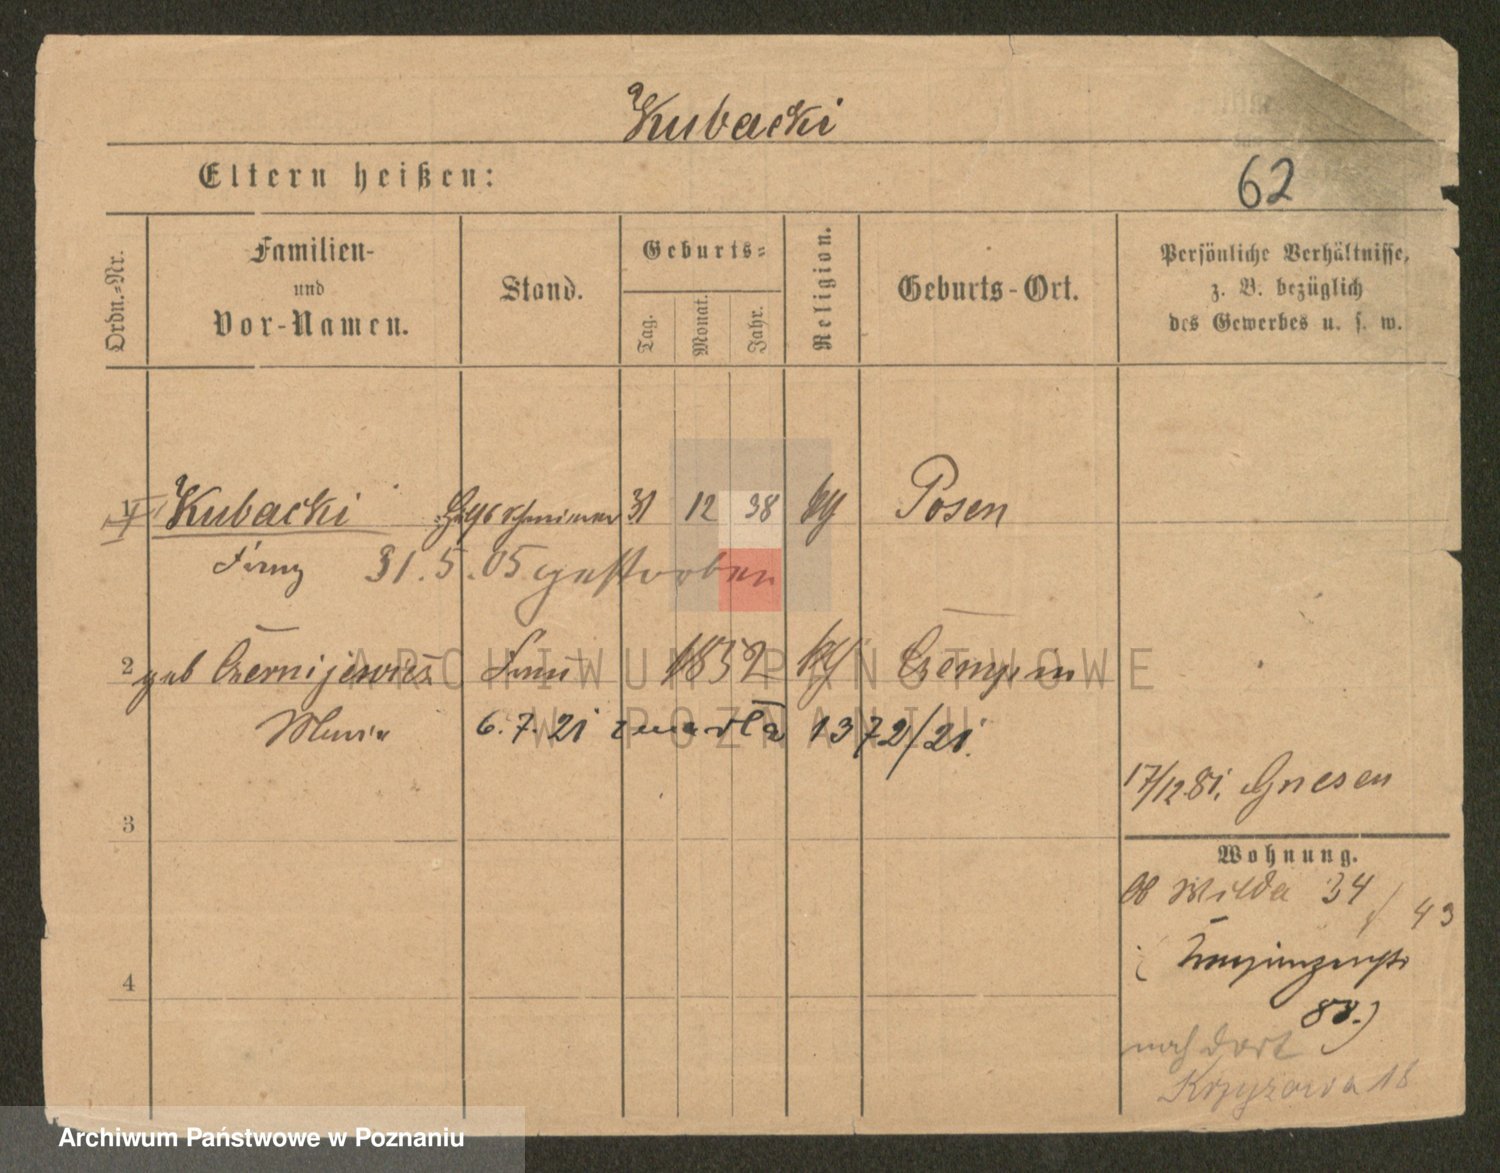 Kubacki
Eltern heißen:
62
Ordn.-Nr.
Familien-
und
Vor-Namen.
Stand.
Geburts-
Tag.
Monat.
Jahr.
Religion.
Geburts-Ort.
Persönliche Verhältnisse,
z. B. bezüglich
des Gewerbes u. s. w.
1 Kubacki 31 12 38 kth Posen
Franz 31.5.05 gestorben
2 geb Czernijewicz Frau 1852 kth Czempin
Maria 6.7.21 zmarła 1372/21.
17/12 81. Gnesen
3
Wohnung.
Ob Wilda 34 / 43
4
(Kronprinzenstr
88.)
noch dort
Krzyżowa 18
ARCHIWUM PAŃSTWOWE
W POZNANIU
Archiwum Państwowe w Poznaniu